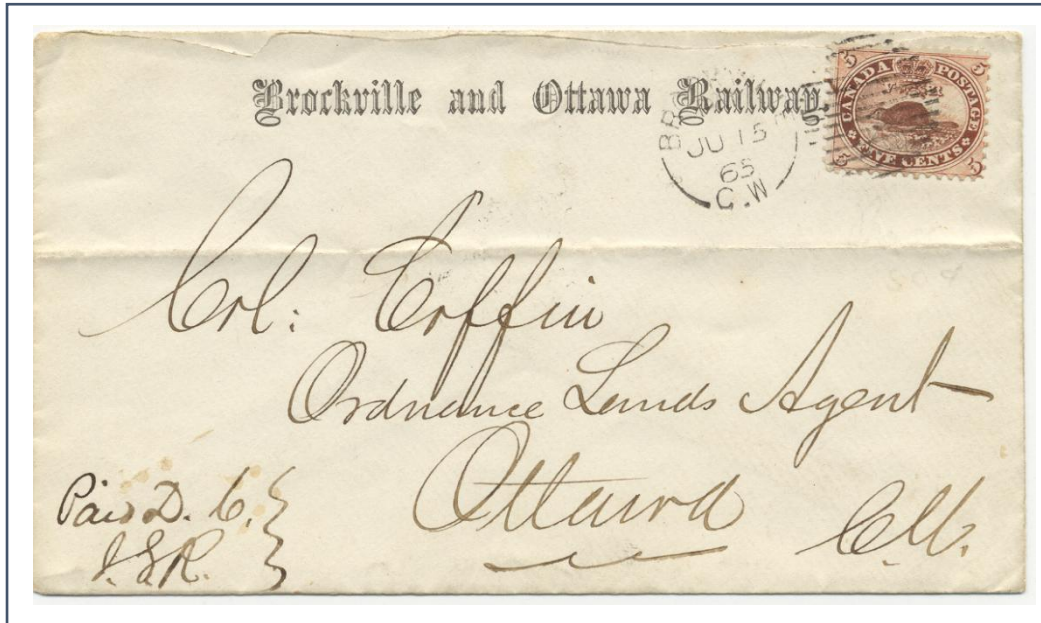 Brockville and Ottawa Railway.
JU 15
65
C.W
5 5
CANADA POSTAGE
FIVE CENTS
5 5
Col: Coffin
Ordnance Lands Agent
Ottawa C.W.
Paid D. C.